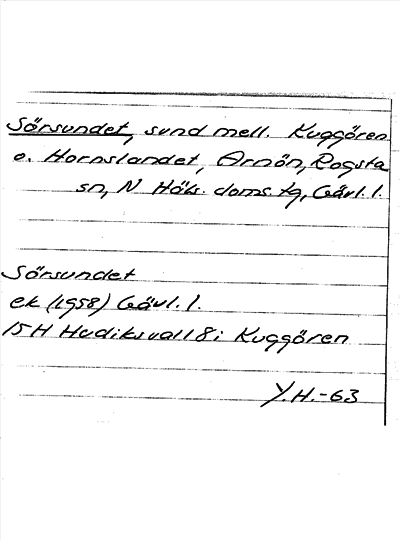 Sörsundet, sund mell. Kuggören
o. Hornslandet, Arnön, Rogsta
sn, N Häls. doms. tg, Gävl. l.
Sörsundet
ek (1958) Gävl. l.
15H Hudiksvall 8i Kuggören
Y.H.-63